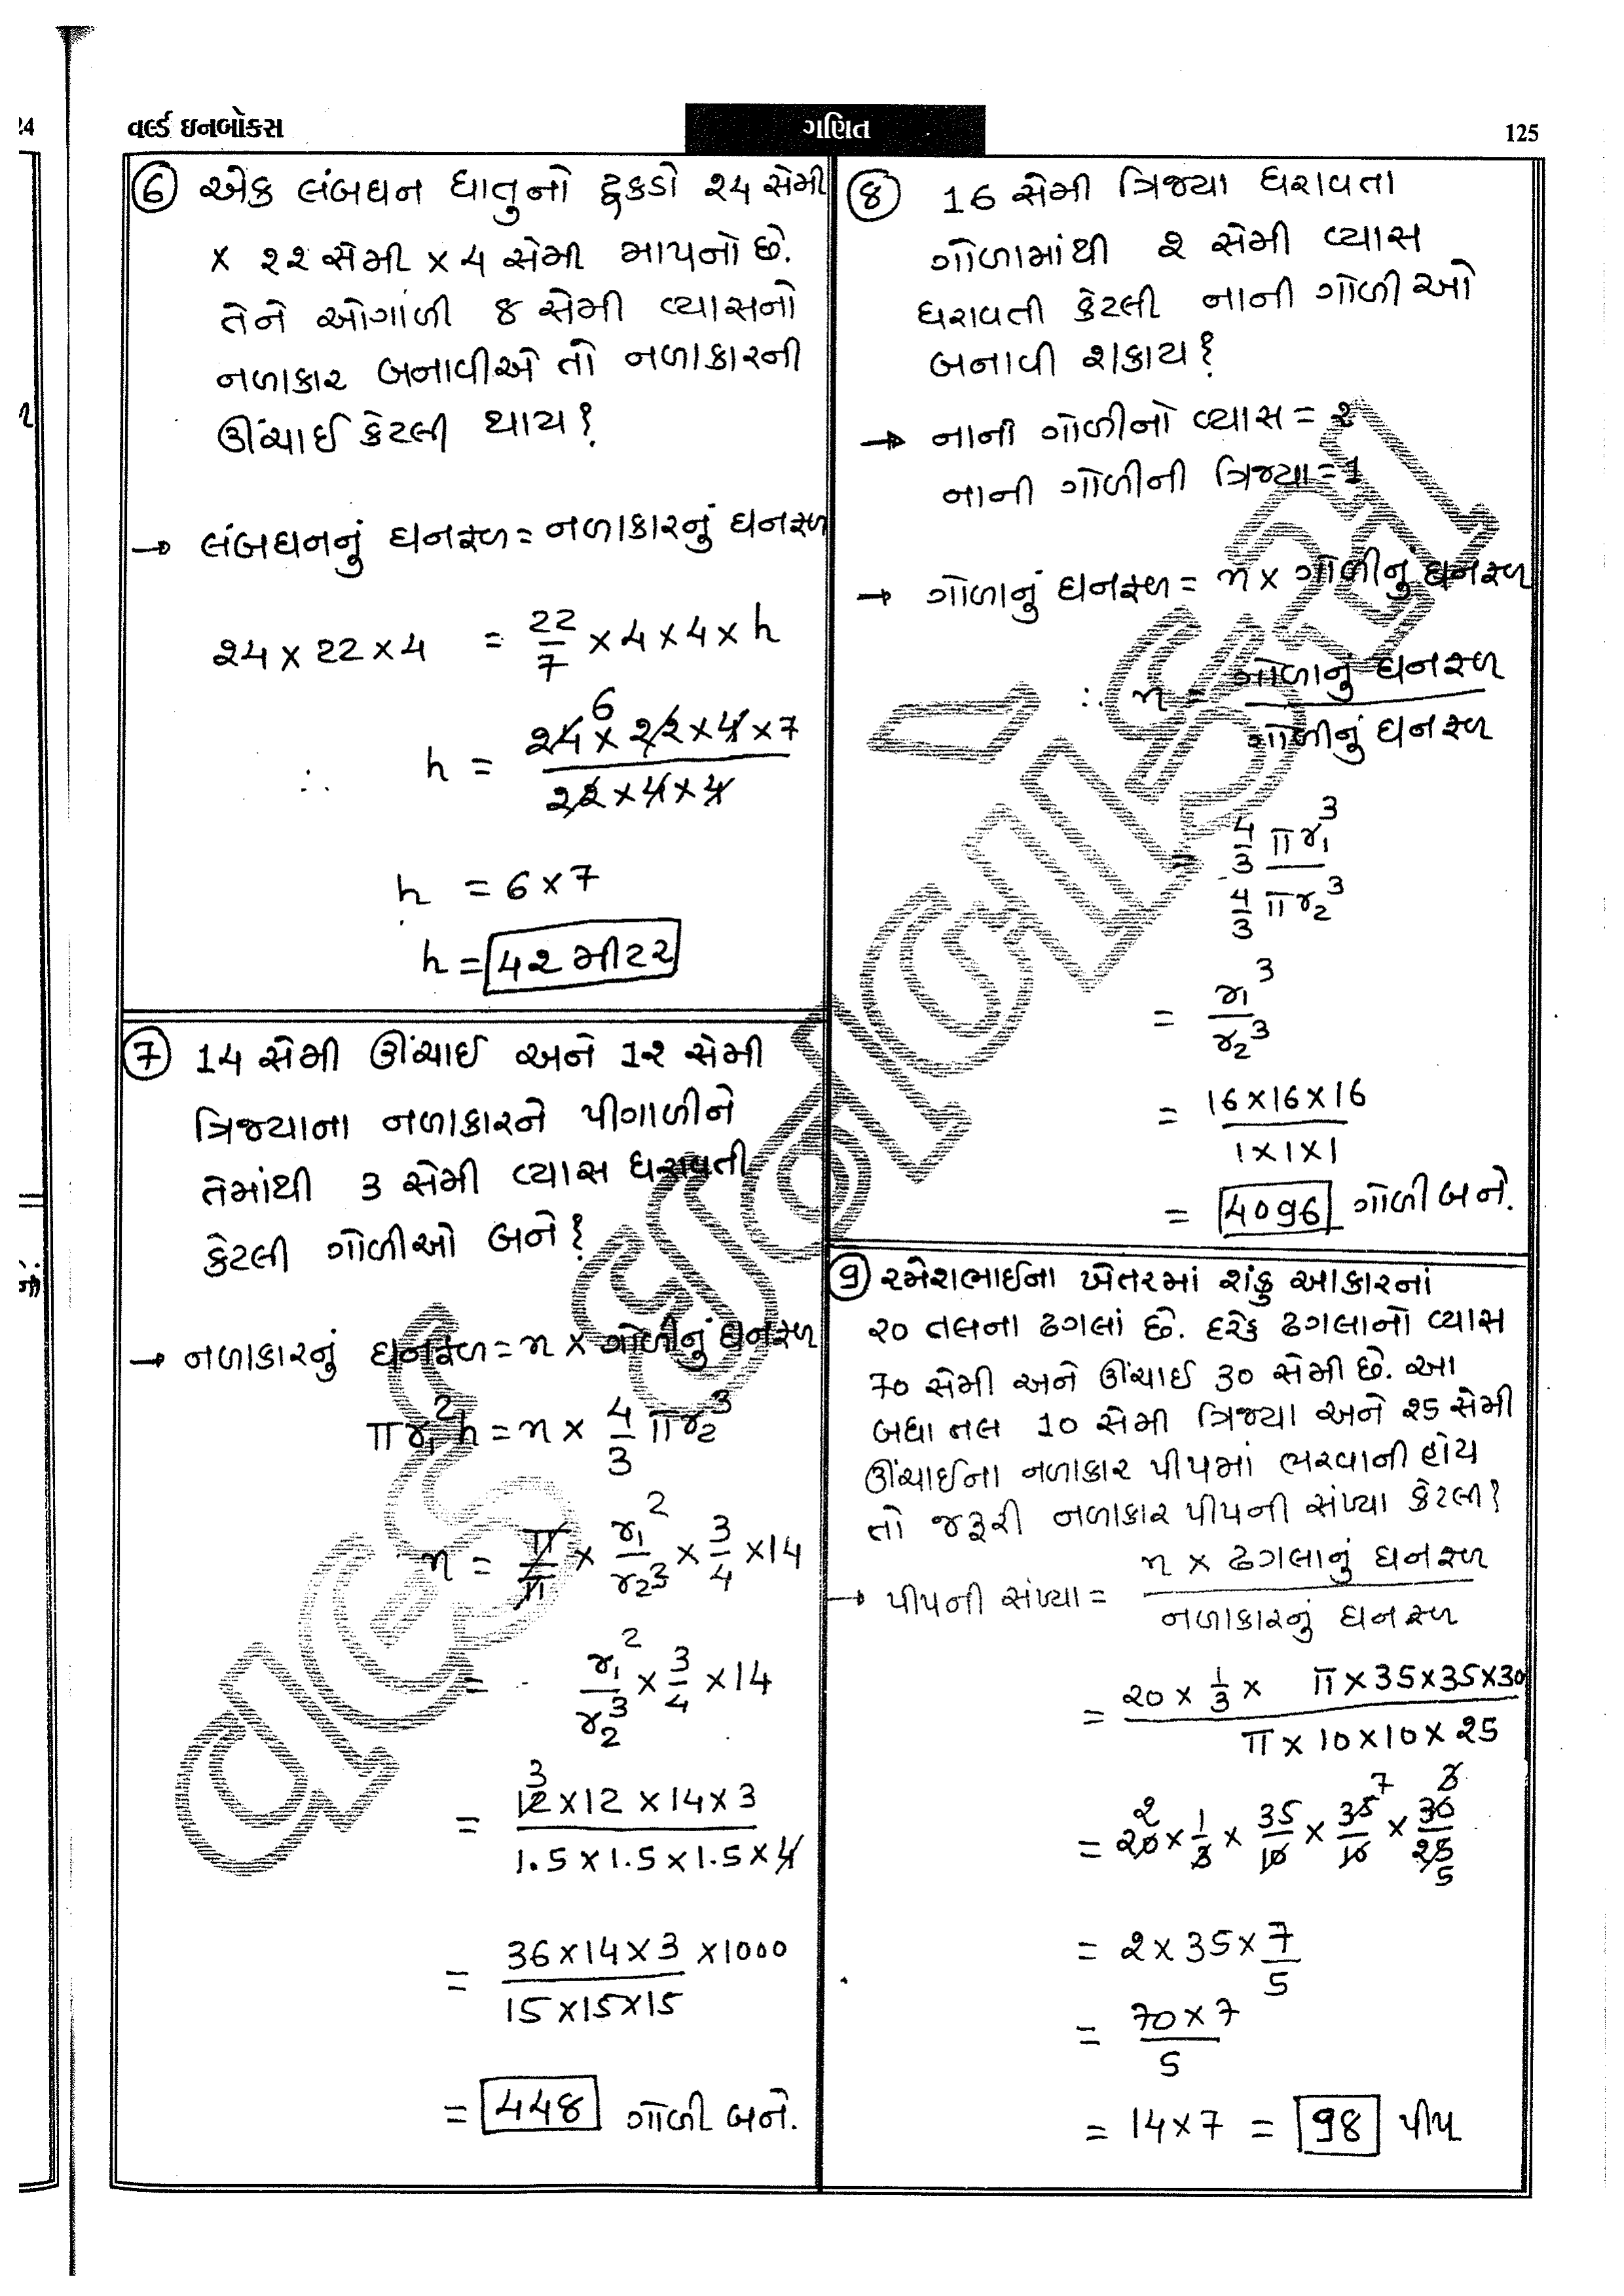 24
વર્લ્ડ ઇનબોક્સ
ગણિત
125
⑥ એક લંબઘન ધાતુનો ટુકડો 24 સેમી
× 22 સેમી × 4 સેમી માપનો છે.
તેને ઓગાળી 8 સેમી વ્યાસનો
નળાકાર બનાવીએ તો નળાકારની
ઊંચાઈ કેટલી થાય?
→ લંબઘનનું ઘનફળ = નળાકારનું ઘનફળ
24 × 22 × 4 = 22/7 × 4 × 4 × h
6
∴ h = 24 × 22 × 4 × 7 / 22 × 4 × 4
h = 6 × 7
h = 42 મીટર
⑦ 14 સેમી ઊંચાઈ અને 12 સેમી
ત્રિજ્યાના નળાકારને પીગાળીને
તેમાંથી 3 સેમી વ્યાસ ધરાવતી
કેટલી ગોળીઓ બને?
→ નળાકારનું ઘનફળ = n × ગોળીનું ઘનફળ
πr₁²h = n × 4/3 πr₂³
n = π/π × r₁²/r₂³ × 3/4 × 14
= r₁²/r₂³ × 3/4 × 14
3
= 12 × 12 × 14 × 3 / 1.5 × 1.5 × 1.5 × 4
= 36 × 14 × 3 / 15 × 15 × 15 × 1000
= 448 ગોળી બને.
⑧ 16 સેમી ત્રિજ્યા ધરાવતા
ગોળામાંથી 2 સેમી વ્યાસ
ધરાવતી કેટલી નાની ગોળીઓ
બનાવી શકાય?
→ નાની ગોળીનો વ્યાસ = 2
નાની ગોળીની ત્રિજ્યા = 1
→ ગોળાનું ઘનફળ = n × ગોળીનું ઘનફળ
∴ n = ગોળાનું ઘનફળ / ગોળીનું ઘનફળ
= 4/3 πr₁³ / 4/3 πr₂³
= r₁³ / r₂³
= 16×16×16 / 1×1×1
= 4096 ગોળી બને.
⑨ રમેશભાઈના ખેતરમાં શંકુ આકારનાં
20 તલના ઢગલાં છે. દરેક ઢગલાનો વ્યાસ
70 સેમી અને ઊંચાઈ 30 સેમી છે. આ
બધા તલ 10 સેમી ત્રિજ્યા અને 25 સેમી
ઊંચાઈના નળાકાર પીપમાં ભરવાની હોય
તો જરૂરી નળાકાર પીપની સંખ્યા કેટલી?
→ પીપની સંખ્યા = n × ઢગલાનું ઘનફળ / નળાકારનું ઘનફળ
= 20 × 1/3 × π × 35×35×30 / π × 10×10 × 25
2 7 3
= 20 × 1/3 × 35/10 × 35/10 × 30/25
5
= 2 × 35 × 7/5
= 70 × 7 / 5
= 14 × 7 = 98 પીપ